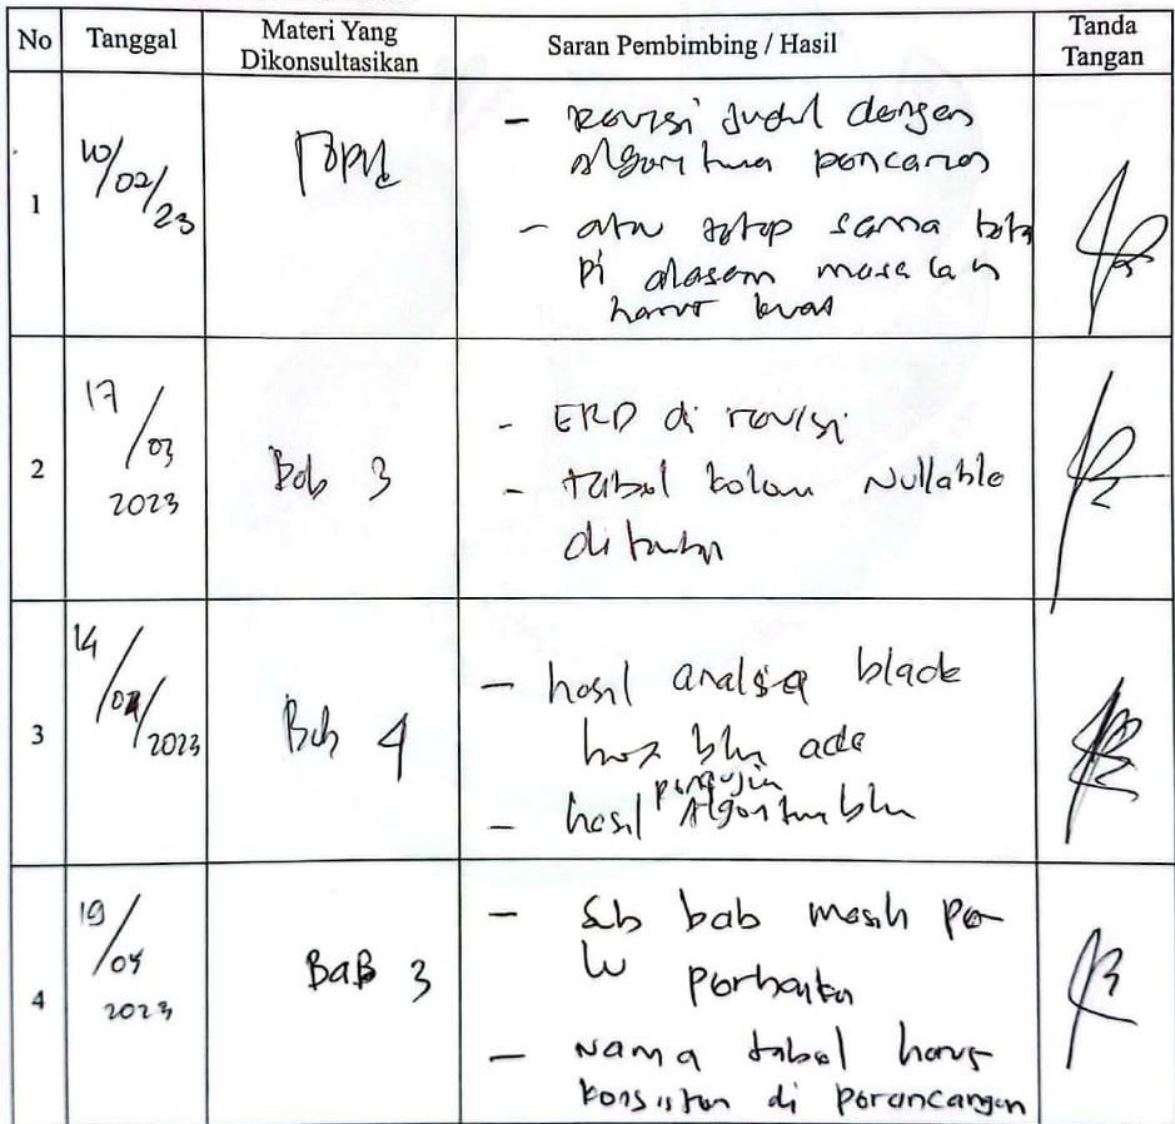 No Tanggal Materi Yang Dikonsultasikan Saran Pembimbing / Hasil Tanda Tangan
1
10/02/23
Topik
- Revisi judul dengan
algoritma pencarian
- atau tetap sama teta
pi alasan masalah
harus kuat
2
17/03
2023
Bab 3
- ERD di revisi
- tabel kolom Nullable
di
3
14/
2023
Bab 4
- hasil analisa blade
box blm ada
pengujian
- hasil Algoritma blm
4
19/04
2023
BaB 3
- Sub bab masih per
lu perbaikan
- Nama tabel harus
konsisten di perancangan